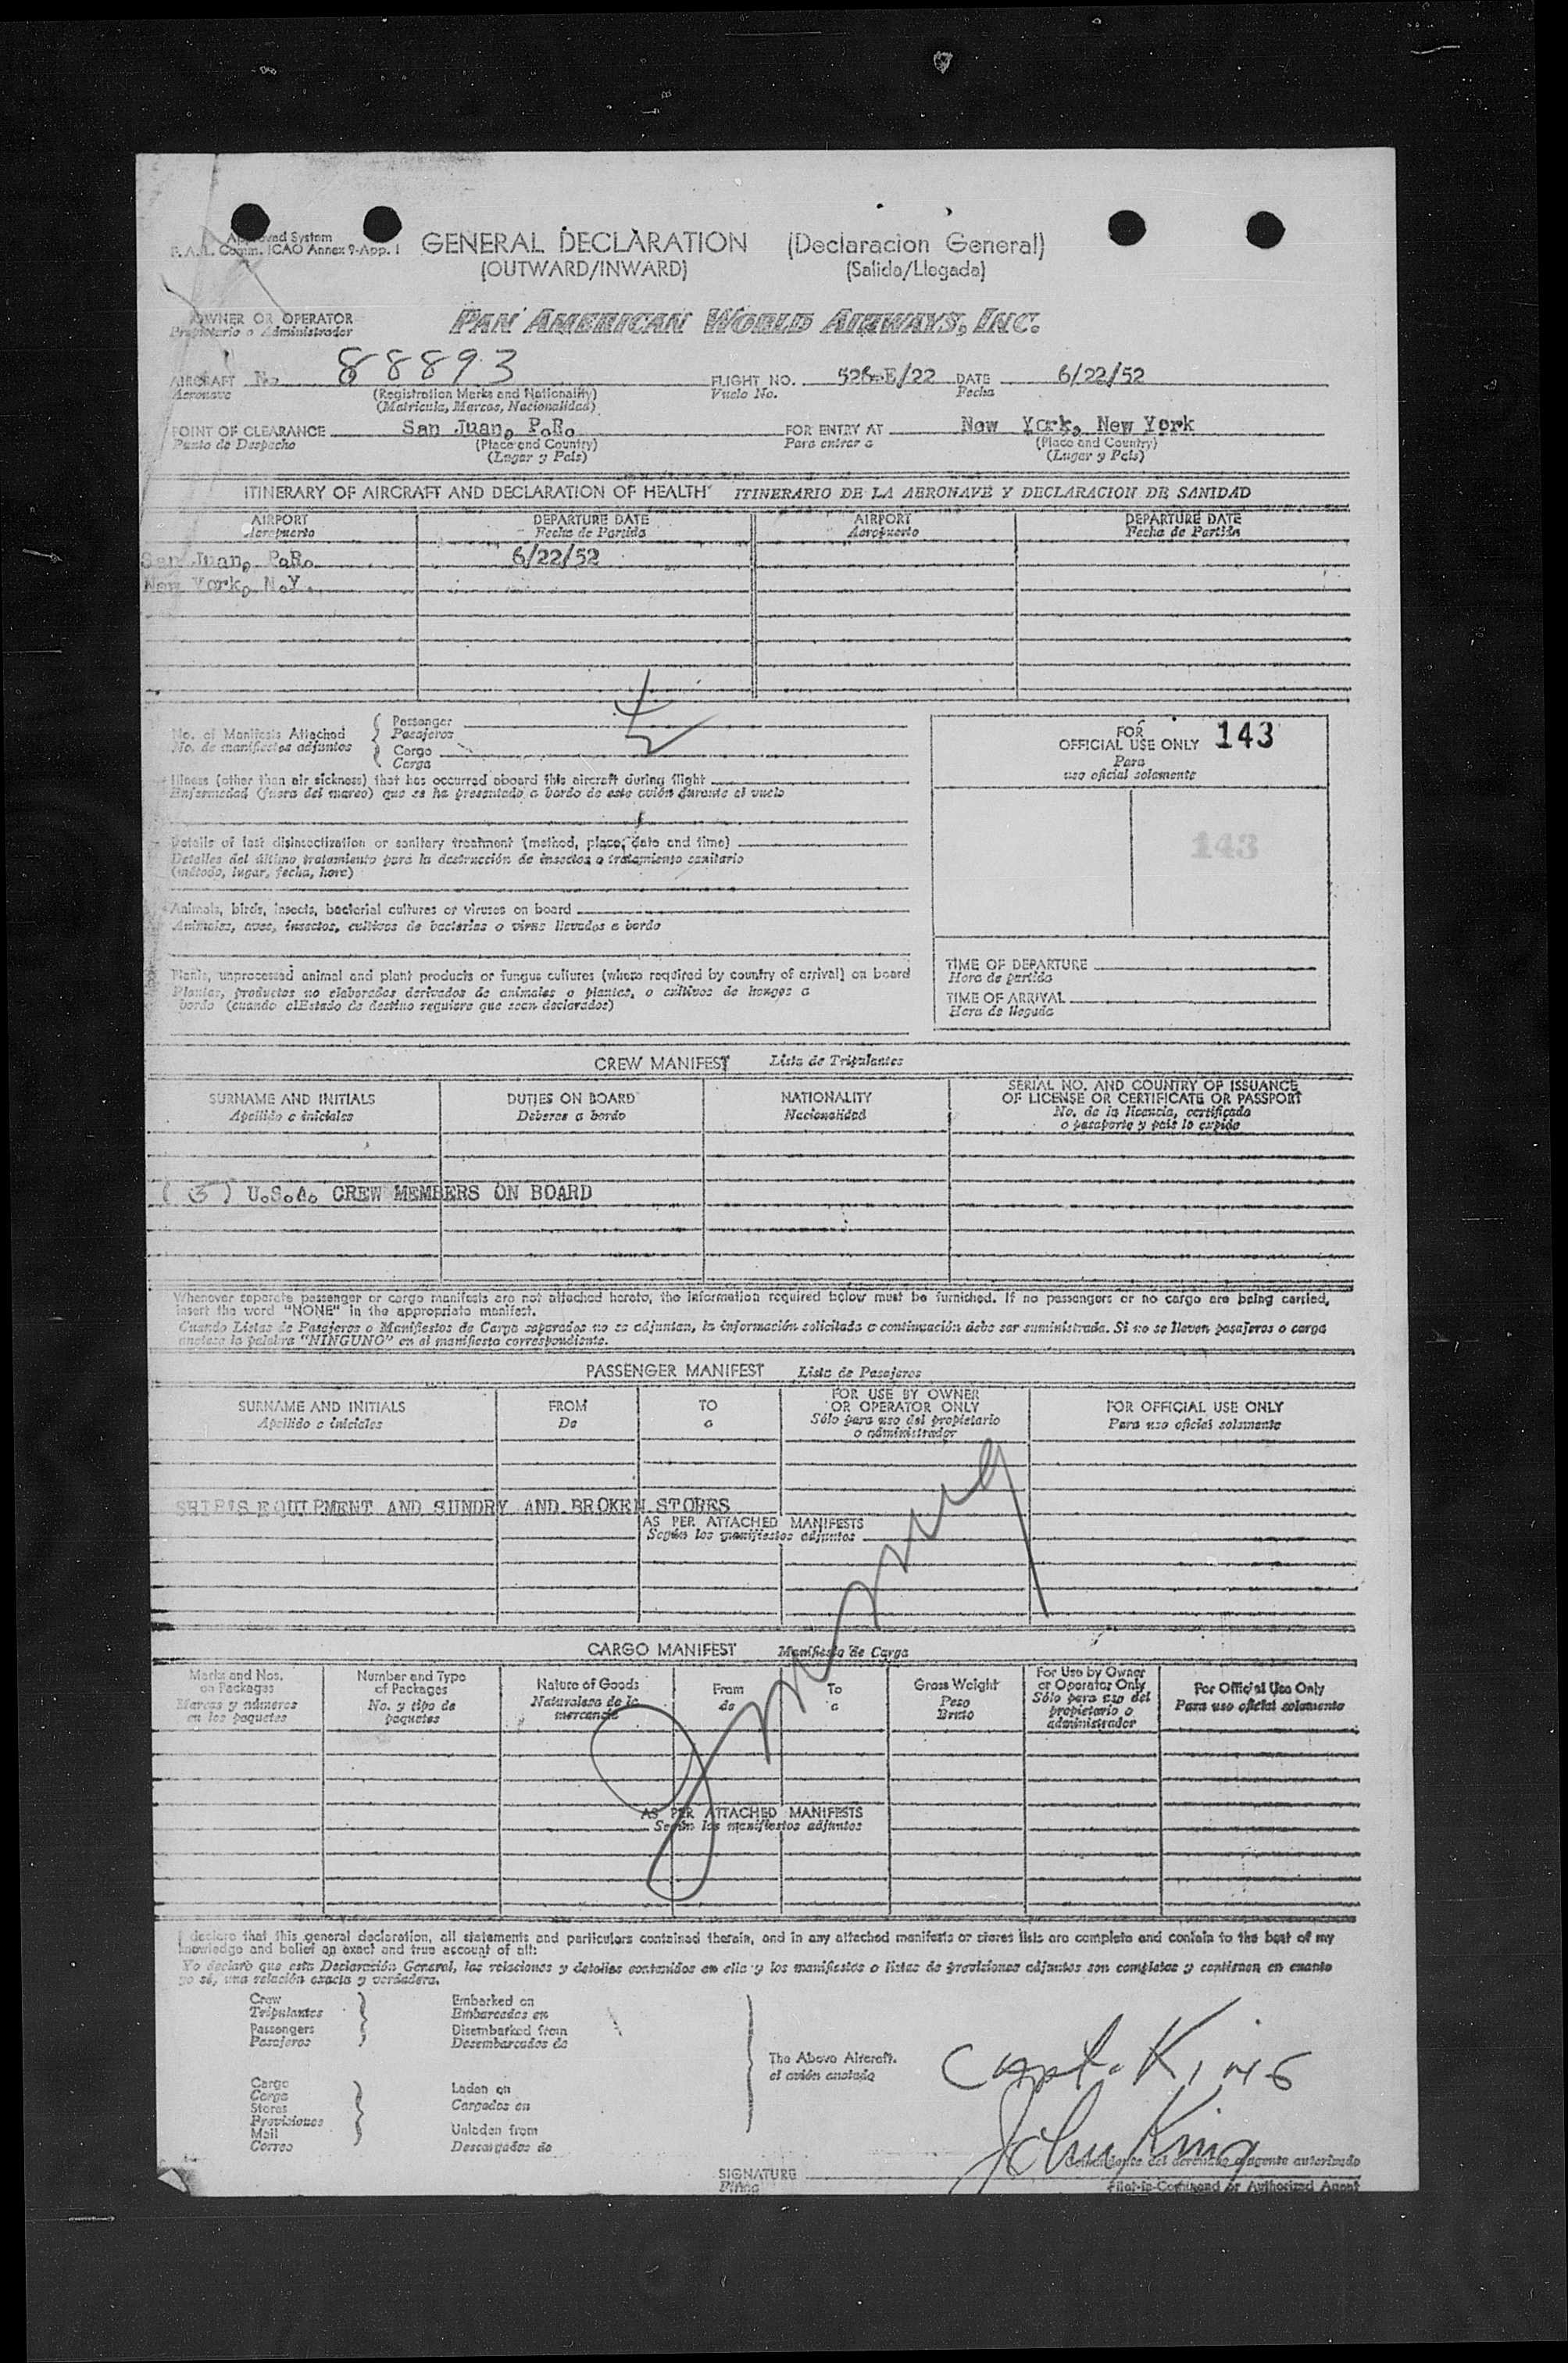 Approved System
F.A.L. Comm. ICAO Annex 9-App. 1
GENERAL DECLARATION (Declaracion General)
(OUTWARD/INWARD) (Salida/Llegada)
OWNER OR OPERATOR
Propietario o Administrador
PAN AMERICAN WORLD AIRWAYS, INC.
AIRCRAFT No. 88893 FLIGHT NO. DATE 6/22/52
Aeronave (Registration Marks and Nationality) Vuelo No. Fecha
(Matricula, Marcas, Nacionalidad)
POINT OF CLEARANCE San Juan, P.R. FOR ENTRY AT New York, New York
Punto de Despacho (Place and Country) Para entrar a (Place and Country)
(Lugar y Pais) (Lugar y Pais)
ITINERARY OF AIRCRAFT AND DECLARATION OF HEALTH ITINERARIO DE LA AERONAVE Y DECLARACION DE SANIDAD
AIRPORT DEPARTURE DATE AIRPORT DEPARTURE DATE
Aeropuerto Fecha de Partida Aeropuerto Fecha de Partida
San Juan, P.R. 6/22/52
New York, N.Y.
No. of Manifests Attached Passenger
No. de manifiestos adjuntos Pasajeros
Cargo
Carga
FOR
OFFICIAL USE ONLY 143
Para
uso oficial solamente
143
Illness (other than air sickness) that has occurred aboard this aircraft during flight
Enfermedad (fuera del mareo) que se ha presentado a bordo de este avión durante el vuelo
Details of last disinsectization or sanitary treatment (method, place, date and time)
Detalles del último tratamiento para la destrucción de insectos o tratamiento sanitario
(método, lugar, fecha, hora)
Animals, birds, insects, bacterial cultures or viruses on board
Animales, aves, insectos, cultivos de bacterias o virus llevados a bordo
Plants, unprocessed animal and plant products or fungus cultures (where required by country of arrival) on board
Plantas, productos no elaborados derivados de animales o plantas, o cultivos de hongos a
bordo (cuando elEstado de destino requiere que sean declarados)
TIME OF DEPARTURE
Hora de partida
TIME OF ARRIVAL
Hora de llegada
CREW MANIFEST Lista de Tripulantes
SURNAME AND INITIALS DUTIES ON BOARD NATIONALITY SERIAL NO. AND COUNTRY OF ISSUANCE
OF LICENSE OR CERTIFICATE OR PASSPORT
Apellido e iniciales Deberes a bordo Nacionalidad No. de la licencia, certificado
o pasaporte y país lo expide
( 3 ) U.S.A. CREW MEMBERS ON BOARD
Whenever separate passenger or cargo manifests are not attached hereto, the information required below must be furnished. If no passengers or no cargo are being carried,
insert the word "NONE" in the appropriate manifest.
Cuando Listas de Pasajeros o Manifiestos de Carga separados no se adjuntan, la información solicitada a continuación debe ser suministrada. Si no se lleven pasajeros o carga
anótese la palabra "NINGUNO" en el manifiesto correspondiente.
PASSENGER MANIFEST Lista de Pasajeros
SURNAME AND INITIALS FROM TO FOR USE BY OWNER
OR OPERATOR ONLY FOR OFFICIAL USE ONLY
Apellido e iniciales De a Sólo para uso del propietario
o administrador Para uso oficial solamente
SHIP'S EQUIPMENT AND SUNDRY AND BROKEN STORES
AS PER ATTACHED MANIFESTS
Según los manifiestos adjuntos
CARGO MANIFEST Manifiesto de Carga
Marks and Nos.
on Packages
Marcas y números
en los paquetes
Number and Type
of Packages
No. y tipo de
paquetes
Nature of Goods
Naturalesa de la
mercancía
From
de
To
a
Gross Weight
Peso
Bruto
For Use by Owner
or Operator Only
Sólo para uso del
propietario o
administrador
For Official Use Only
Para uso oficial solamente
AS PER ATTACHED MANIFESTS
Según los manifiestos adjuntos
I declare that this general declaration, all statements and particulars contained therein, and in any attached manifests or stores lists are complete and contain to the best of my
knowledge and belief an exact and true account of all:
Yo declaro que esta Declaración General, las relaciones y detalles contenidos en ella y los manifiestos o listas de provisiones adjuntos son completas y contienen en cuanto
yo sé, una relación exacta y verdadera.
Crew
Tripulantes
Passengers
Pasajeros
Embarked on
Embarcados en
Disembarked from
Desembarcados de
Cargo
Carga
Stores
Provisiones
Mail
Correo
Laden on
Cargados en
Unladen from
Descargados de
The Above Aircraft.
el avión anotado
Capt. King
John King
SIGNATURE
Firma
Pilot-in-Command or Authorized Agent